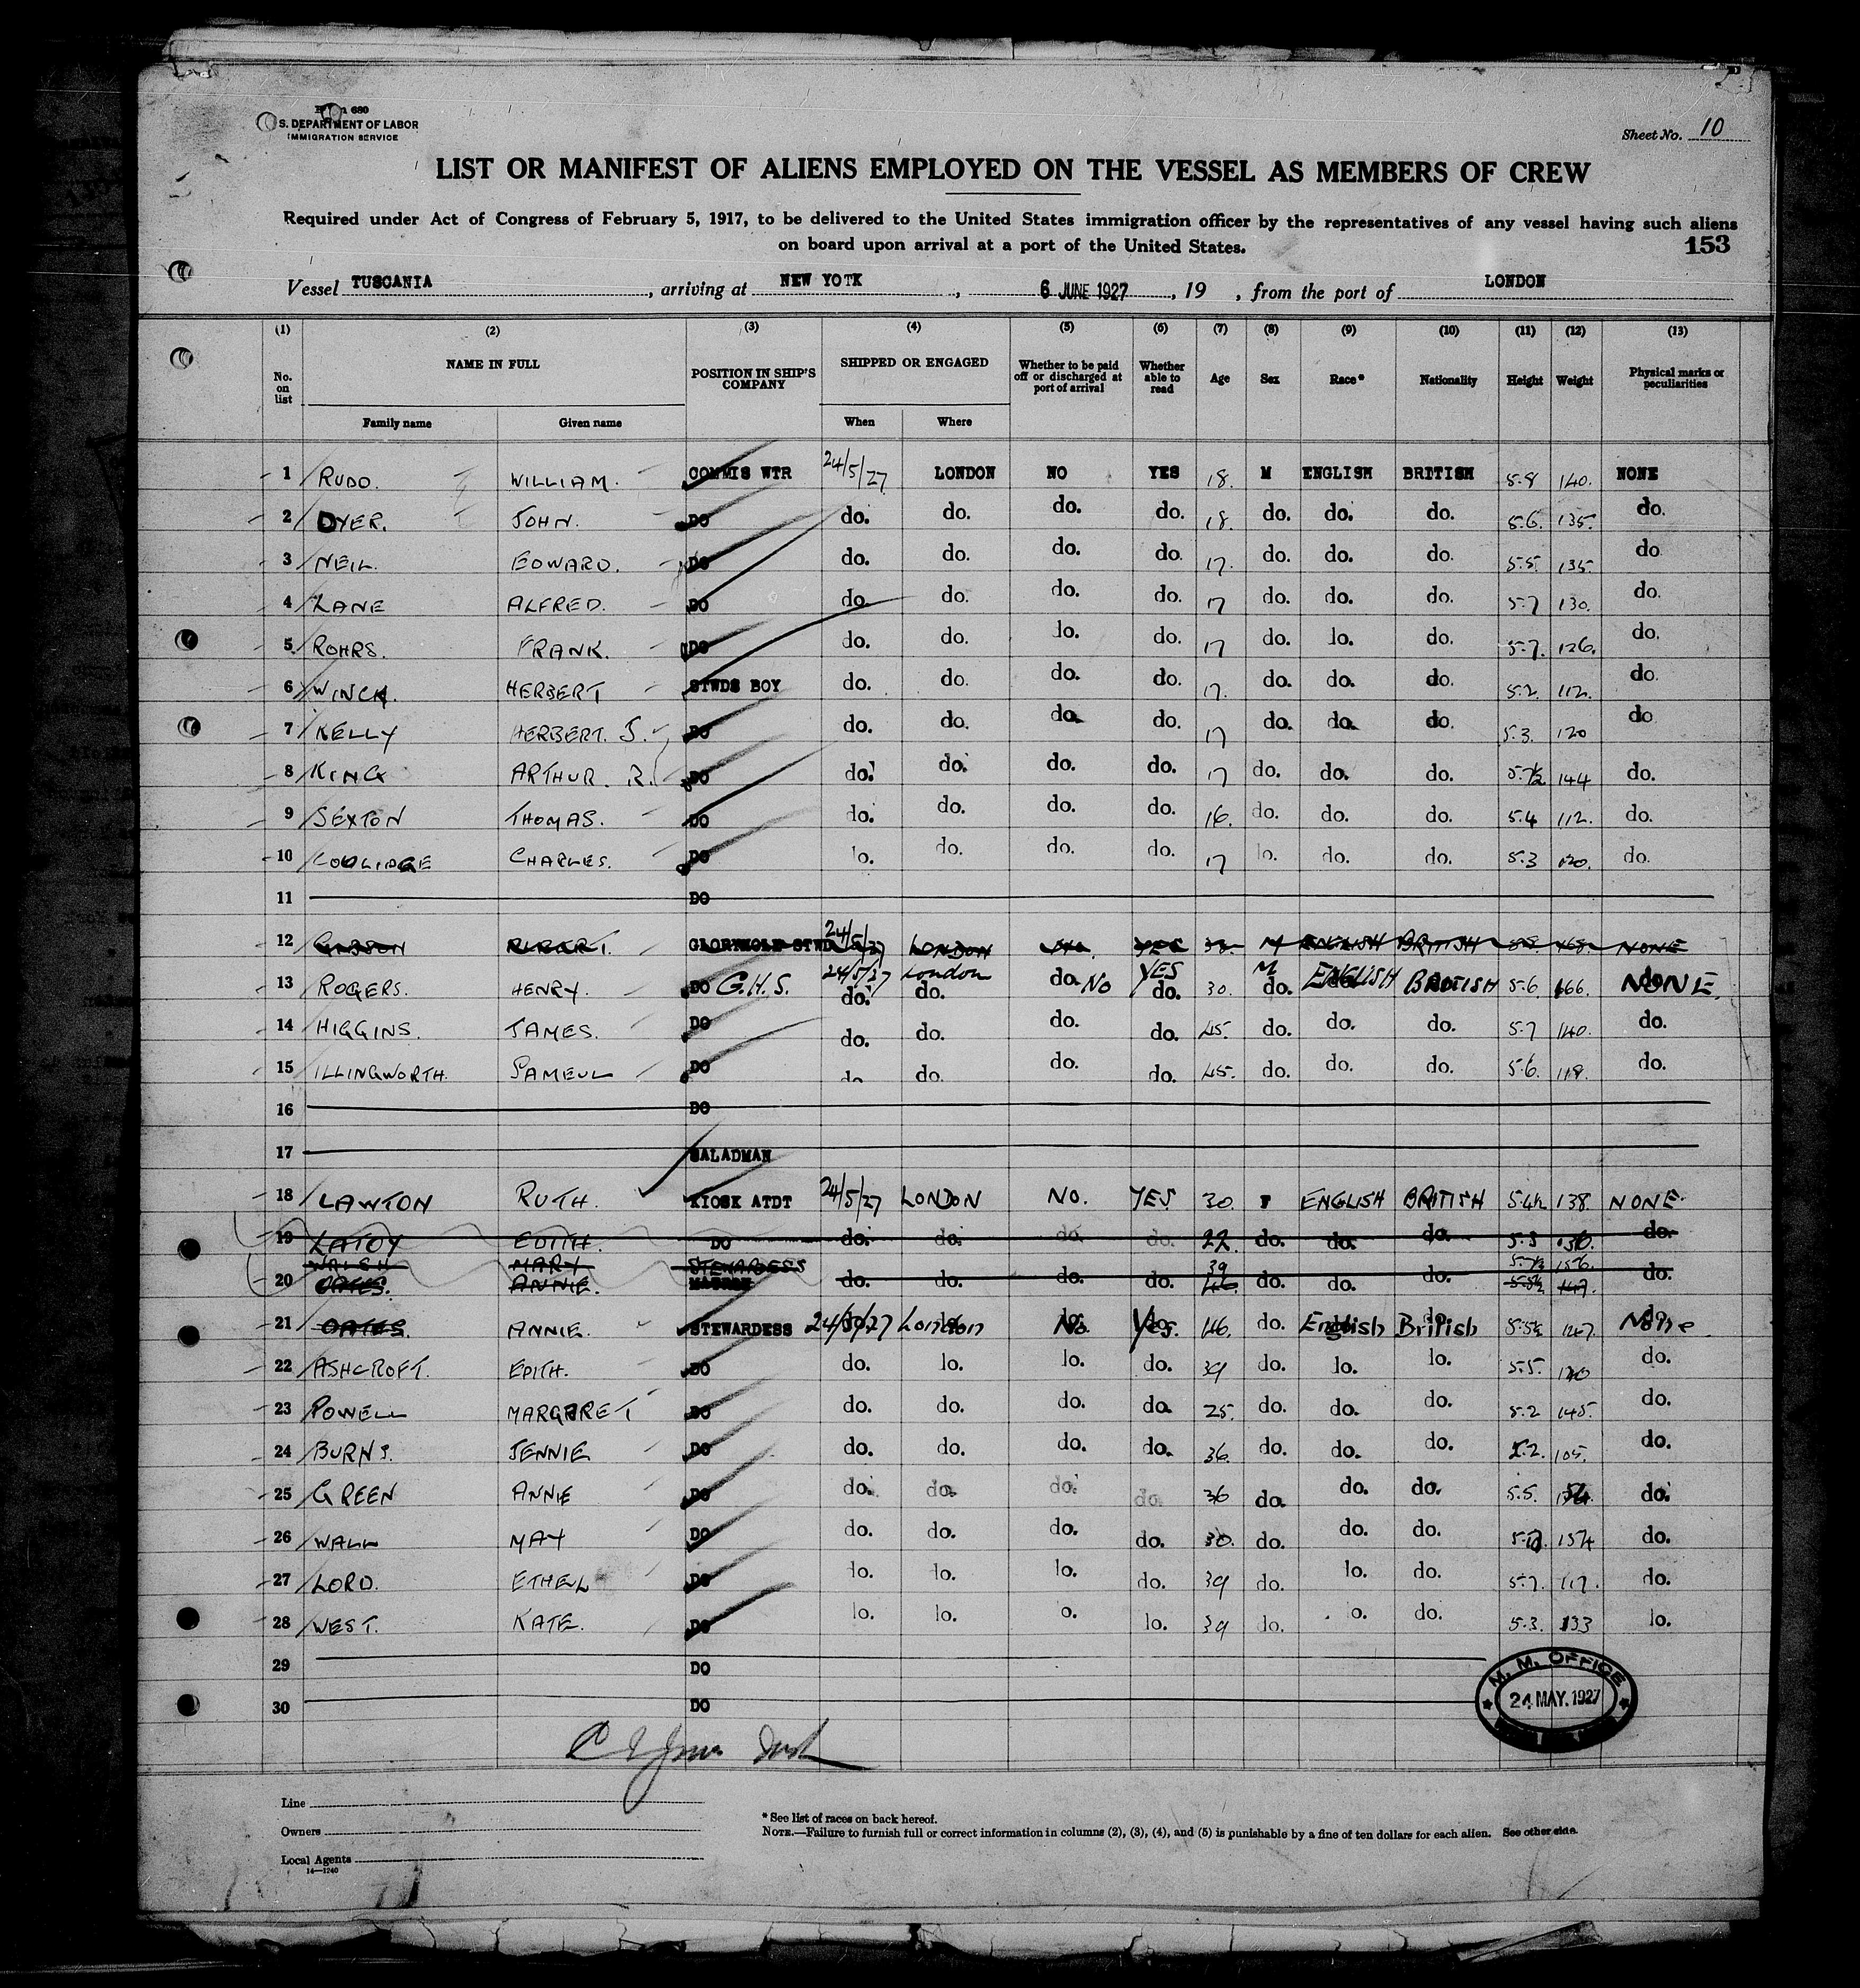 Form 680
U.S. DEPARTMENT OF LABOR
IMMIGRATION SERVICE
Sheet No. 10
LIST OR MANIFEST OF ALIENS EMPLOYED ON THE VESSEL AS MEMBERS OF CREW
Required under Act of Congress of February 5, 1917, to be delivered to the United States immigration officer by the representatives of any vessel having such aliens
on board upon arrival at a port of the United States.
153
Vessel TUSCANIA, arriving at NEW YOTK, 6 JUNE 1927, 19 , from the port of LONDON
(1) (2) (3) (4) (5) (6) (7) (8) (9) (10) (11) (12) (13)
No. on list NAME IN FULL Family name Given name POSITION IN SHIP'S COMPANY SHIPPED OR ENGAGED When Where Whether to be paid off or discharged at port of arrival Whether able to read Age Sex Race* Nationality Height Weight Physical marks or peculiarities
1 RUDD. WILLIAM. COMMIS WTR 24/5/27 LONDON NO YES 18. M ENGLISH BRITISH 5.8 140. NONE
2 DYER. JOHN. DO do. do. do. do. 18. do. do. do. 5.6. 135. do.
3 NEIL. EDWARD. DO do. do. do. do. 17. do. do. do. 5.5. 135. do
4 LANE ALFRED. DO do. do. do. do. 17 do. do. do. 5.7 130. do.
5 ROHRS. FRANK. DO do. do. do. do. 17 do. do. do. 5.7. 126. do.
6 WINCH. HERBERT STWDS BOY do. do. do. do. 17. do. do. do. 5.2. 112. do.
7 KELLY HERBERT. J. DO do. do. do. do. 17 do. do. do. 5.3. 120 do
8 KING ARTHUR. R. DO do. do. do. do. 17 do. do. do. 5.7½ 144 do.
9 SEXTON THOMAS. DO do. do. do. do. 16. do. do. do. 5.4 112. do.
10 COOLIDGE CHARLES. DO do. do. do. do. 17 do. do. do. 5.3 do.
11 DO
12 GIBSON GLORYHOLE STWD 24/5/27 LONDON YES M ENGLISH BRITISH NONE
13 ROGERS. HENRY. DO G.H.S. 24/5/27 London do. do. do. No YES do. 30. M do. ENGLISH BRITISH 5.6 166. NONE.
14 HIGGINS. JAMES. DO do. do. do. do. 45. do. do. do. 5.7 140. do.
15 ILLINGWORTH. SAMEUL DO do. do. do. do. 45. do. do. do. 5.6. 118. do.
16 DO
17 SALADMAN
18 LAWTON RUTH. KIOSK ATDT 24/5/27 LONDON NO. YES 30. F ENGLISH BRITISH 5.4½ 138. NONE.
19 LATOY EDITH. DO do. do. do. do. 22. do. do. do. 5.5 do.
WALSH MARY STEWARDESS 39 5.7½ 156.
20 OATES. ANNIE. MATRON do. do. do. do. 46. do. do. do. 5.5½ 147. do.
21 OATES. ANNIE. STEWARDESS 24/5/27 London No. Yes. 46. do. English British 5.5½ 147. None
22 ASHCROFT. EDITH. DO do. do. do. do. 39 do. do. do. 5.5. do.
23 POWELL MARGARET DO do. do. do. do. 25. do. do. do. 5.2 145. do.
24 BURNS. JENNIE DO do. do. do. do. 36. do. do. do. 5.2. 105. do.
25 GREEN ANNIE DO do. do. do. do. 36 do. do. do. 5.5. do.
26 WALL MAY DO do. do. do. do. 30. do. do. do. 154 do.
27 LORD. ETHEL DO do. do. do. do. 39 do. do. do. 5.7. 117. do.
28 WEST. KATE. DO do. do. do. do. 39 do. do. do. 5.3. 133 do.
29 DO
30 DO
M. M. OFFICE
24 MAY. 1927
Line
Owners
Local Agents
14—1240
* See list of races on back hereof.
NOTE.—Failure to furnish full or correct information in columns (2), (3), (4), and (5) is punishable by a fine of ten dollars for each alien. See other side.